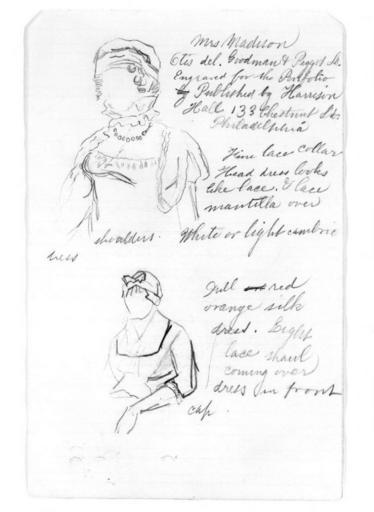 Mrs Madison
Otis del. Goodman & Piggot Sc.
Engraved for the Portfolio
by Published by Harrison
Hall 133 Chestnut St
Philadelphia
Fine lace collar
Head dress looks
like lace. & lace
mantilla over
shoulders. White or light cambric
dress
Dull red
orange silk
dress. Light
lace shawl
coming over
dress in front
cap.